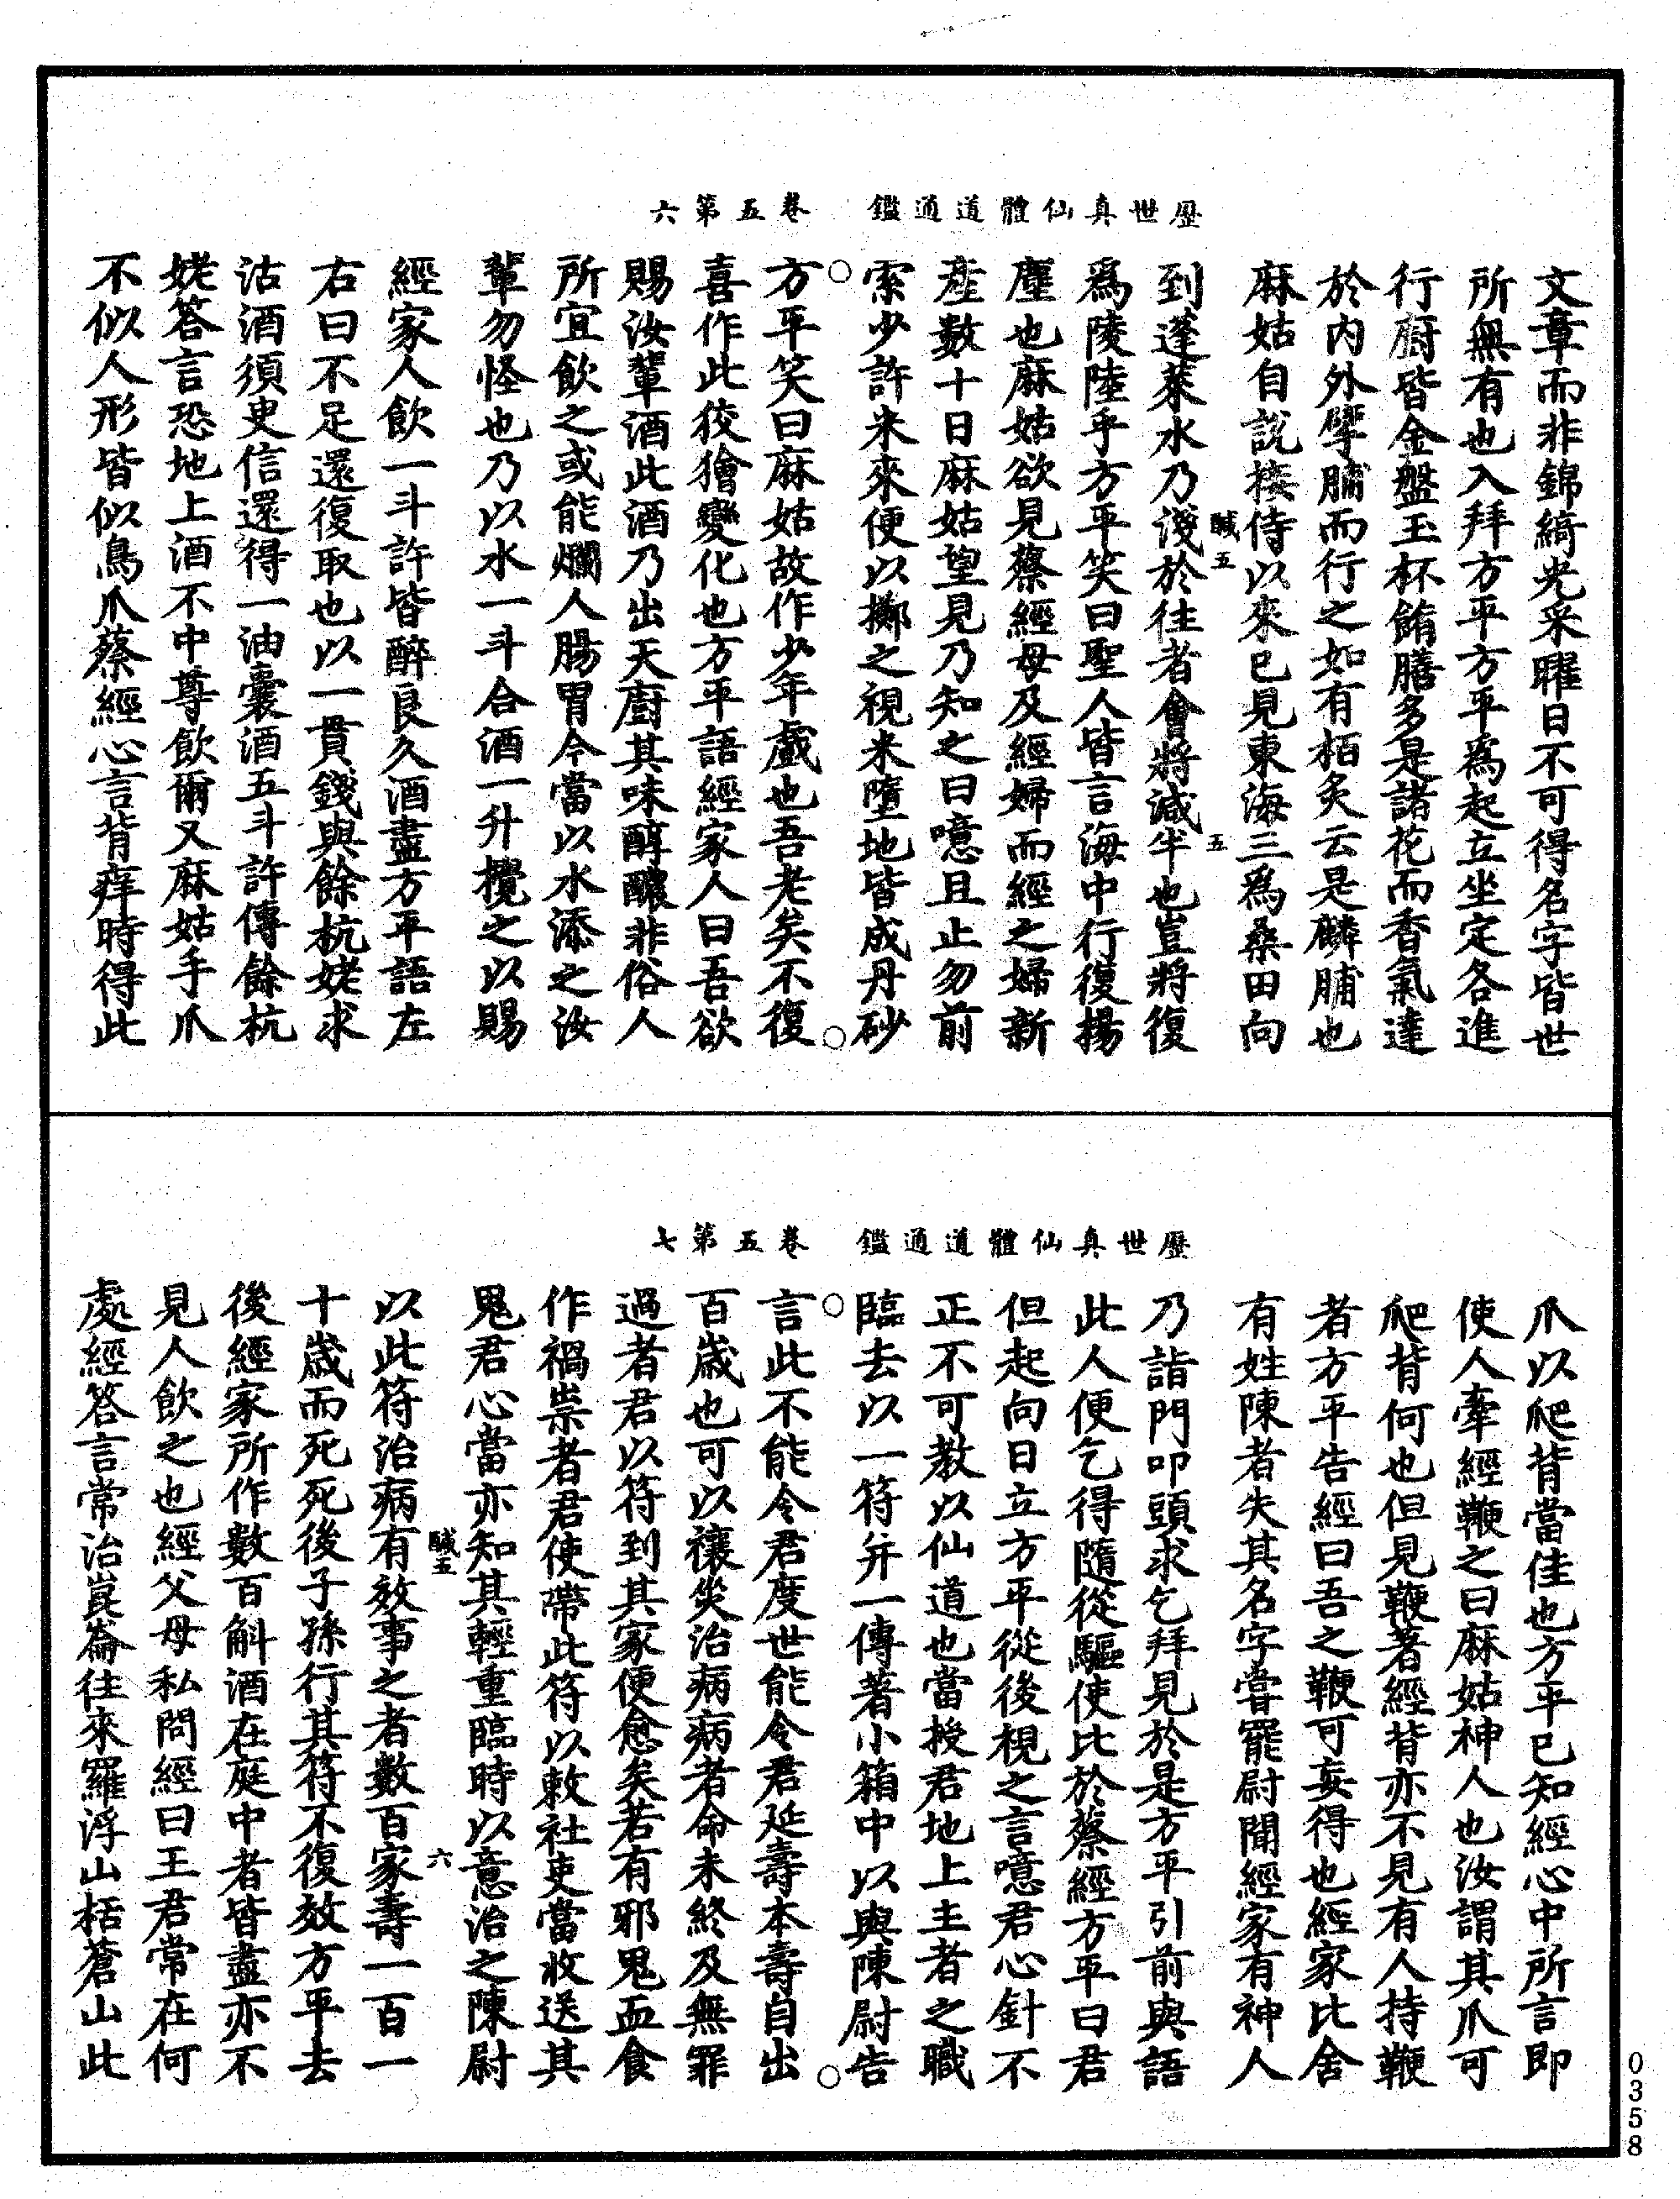 歷世真仙體道通鑑　卷五第六
文章而非錦綺光采曜日不可得名字皆世
所無有也入拜方平方平為起立坐定各進
行廚皆金盤玉杯餚膳多是諸花而香氣達
於内外擘脯而行之如有栢炙云是麟脯也
麻姑自說接侍以來已見東海三為桑田向
馘五
五
到蓬萊水乃淺於往者會將減半也豈將復
為陵陸乎方平笑曰聖人皆言海中行復揚
塵也麻姑欲見蔡經母及經婦而經之婦新
產數十日麻姑望見乃知之曰噫且止勿前
索少許米來便以擲之視米墮地皆成丹砂
方平笑曰麻姑故作少年戲也吾老矣不復
喜作此狡獪變化也方平語經家人曰吾欲
賜汝輩酒此酒乃出天廚其味醇醲非俗人
所宜飲之或能爛人腸胃今當以水添之汝
輩勿怪也乃以水一斗合酒一升攪之以賜
經家人飲一斗許皆醉良久酒盡方平語左
右曰不足還復取也以一貫錢與餘杭姥求
沽酒須臾信還得一油囊酒五斗許傳餘杭
姥荅言恐地上酒不中尊飲爾又麻姑手爪
不似人形皆似鳥爪蔡經心言背痒時得此
歷世真仙體道通鑑　卷五第七
爪以爬背當佳也方平已知經心中所言即
使人牽經鞭之曰麻姑神人也汝謂其爪可
爬背何也但見鞭著經背亦不見有人持鞭
者方平告經曰吾之鞭可妄得也經家比舍
有姓陳者失其名字嘗罷尉聞經家有神人
乃詣門叩頭求乞拜見於是方平引前與語
此人便乞得隨從驅使比於蔡經方平曰君
但起向日立方平從後視之言噫君心不
正不可教以仙道也當授君地上主者之職
臨去以一符并一傳著小箱中以與陳尉告
言此不能令君度世能令君延壽本壽自出
百歲也可以禳災治病病者命未終及無罪
過者君以符到其家便愈矣若有邪鬼血食
作禍祟者君使帶此符以敕社吏當收送其
鬼君心當亦知其輕重臨時以意治之陳尉
馘五
六
以此符治病有效事之者數百家壽一百一
十歲而死死後子孫行其符不復效方平去
後經家所作數百斛酒在庭中者皆盡亦不
見人飲之也經父母私問經曰王君常在何
處經荅言常治崑崙往來羅浮山括蒼山此
0358